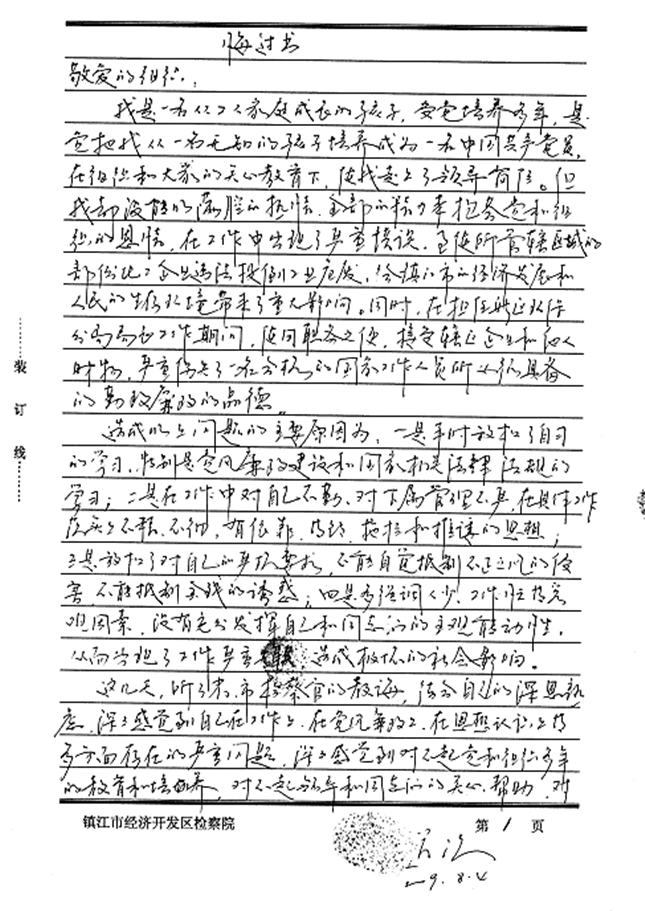 悔过书
敬爱的组织:
我是一名从工人家庭成长的孩子,受党培养多年,是
党把我从一名无知的孩子培养成为一名中国共产党员,
在组织和大家的关心教育下,使我走上了领导岗位。但
我却没有的满腔的热情、全部的精力来报答党和组
织的恩情,在工作中出现了严重错误,至使所管辖区域的
部份化工企业违法排倒工业废,给镇江市的经济发展和
人民的生活环境带来了重大影响。同时,在担任
分局局长工作期间,使用职务之便,接受辖区企业和他人
财物,严重 了一名合格的国家工作人员所必须具备
的勤政廉政的品德。
造成以上问题的主要原因为,一是平时放松了自习
的学习,特别是党风廉政建设和国家机关法律法规的
学习;二是在工作中对自己不 ,对下属管理不严,在具体工作
落实上不 、不细,有依靠、 、拖拉和推诿的思想;
三是放松了对自己的严格要求,不能自觉抵制不正之风的侵
害,不能抵制金钱的诱惑;四是多强调人少、工作 等客
观因素,没有充分发挥自己和同志们的主观能动性,
从而出现了工作严重 ,造成极坏的社会影响。
这几天,听了 市检察官的教诲,结合自己的深思熟
虑,深深感觉到自己在工作上、在党风廉政上、在思想认识上等
多方面存在的严重问题,深深感觉到对不起党和组织多年
的教育和培养,对不起 和同志们的关心、帮助,对
镇江市经济开发区检察院 第 1 页
2009.8.4
装
订
线